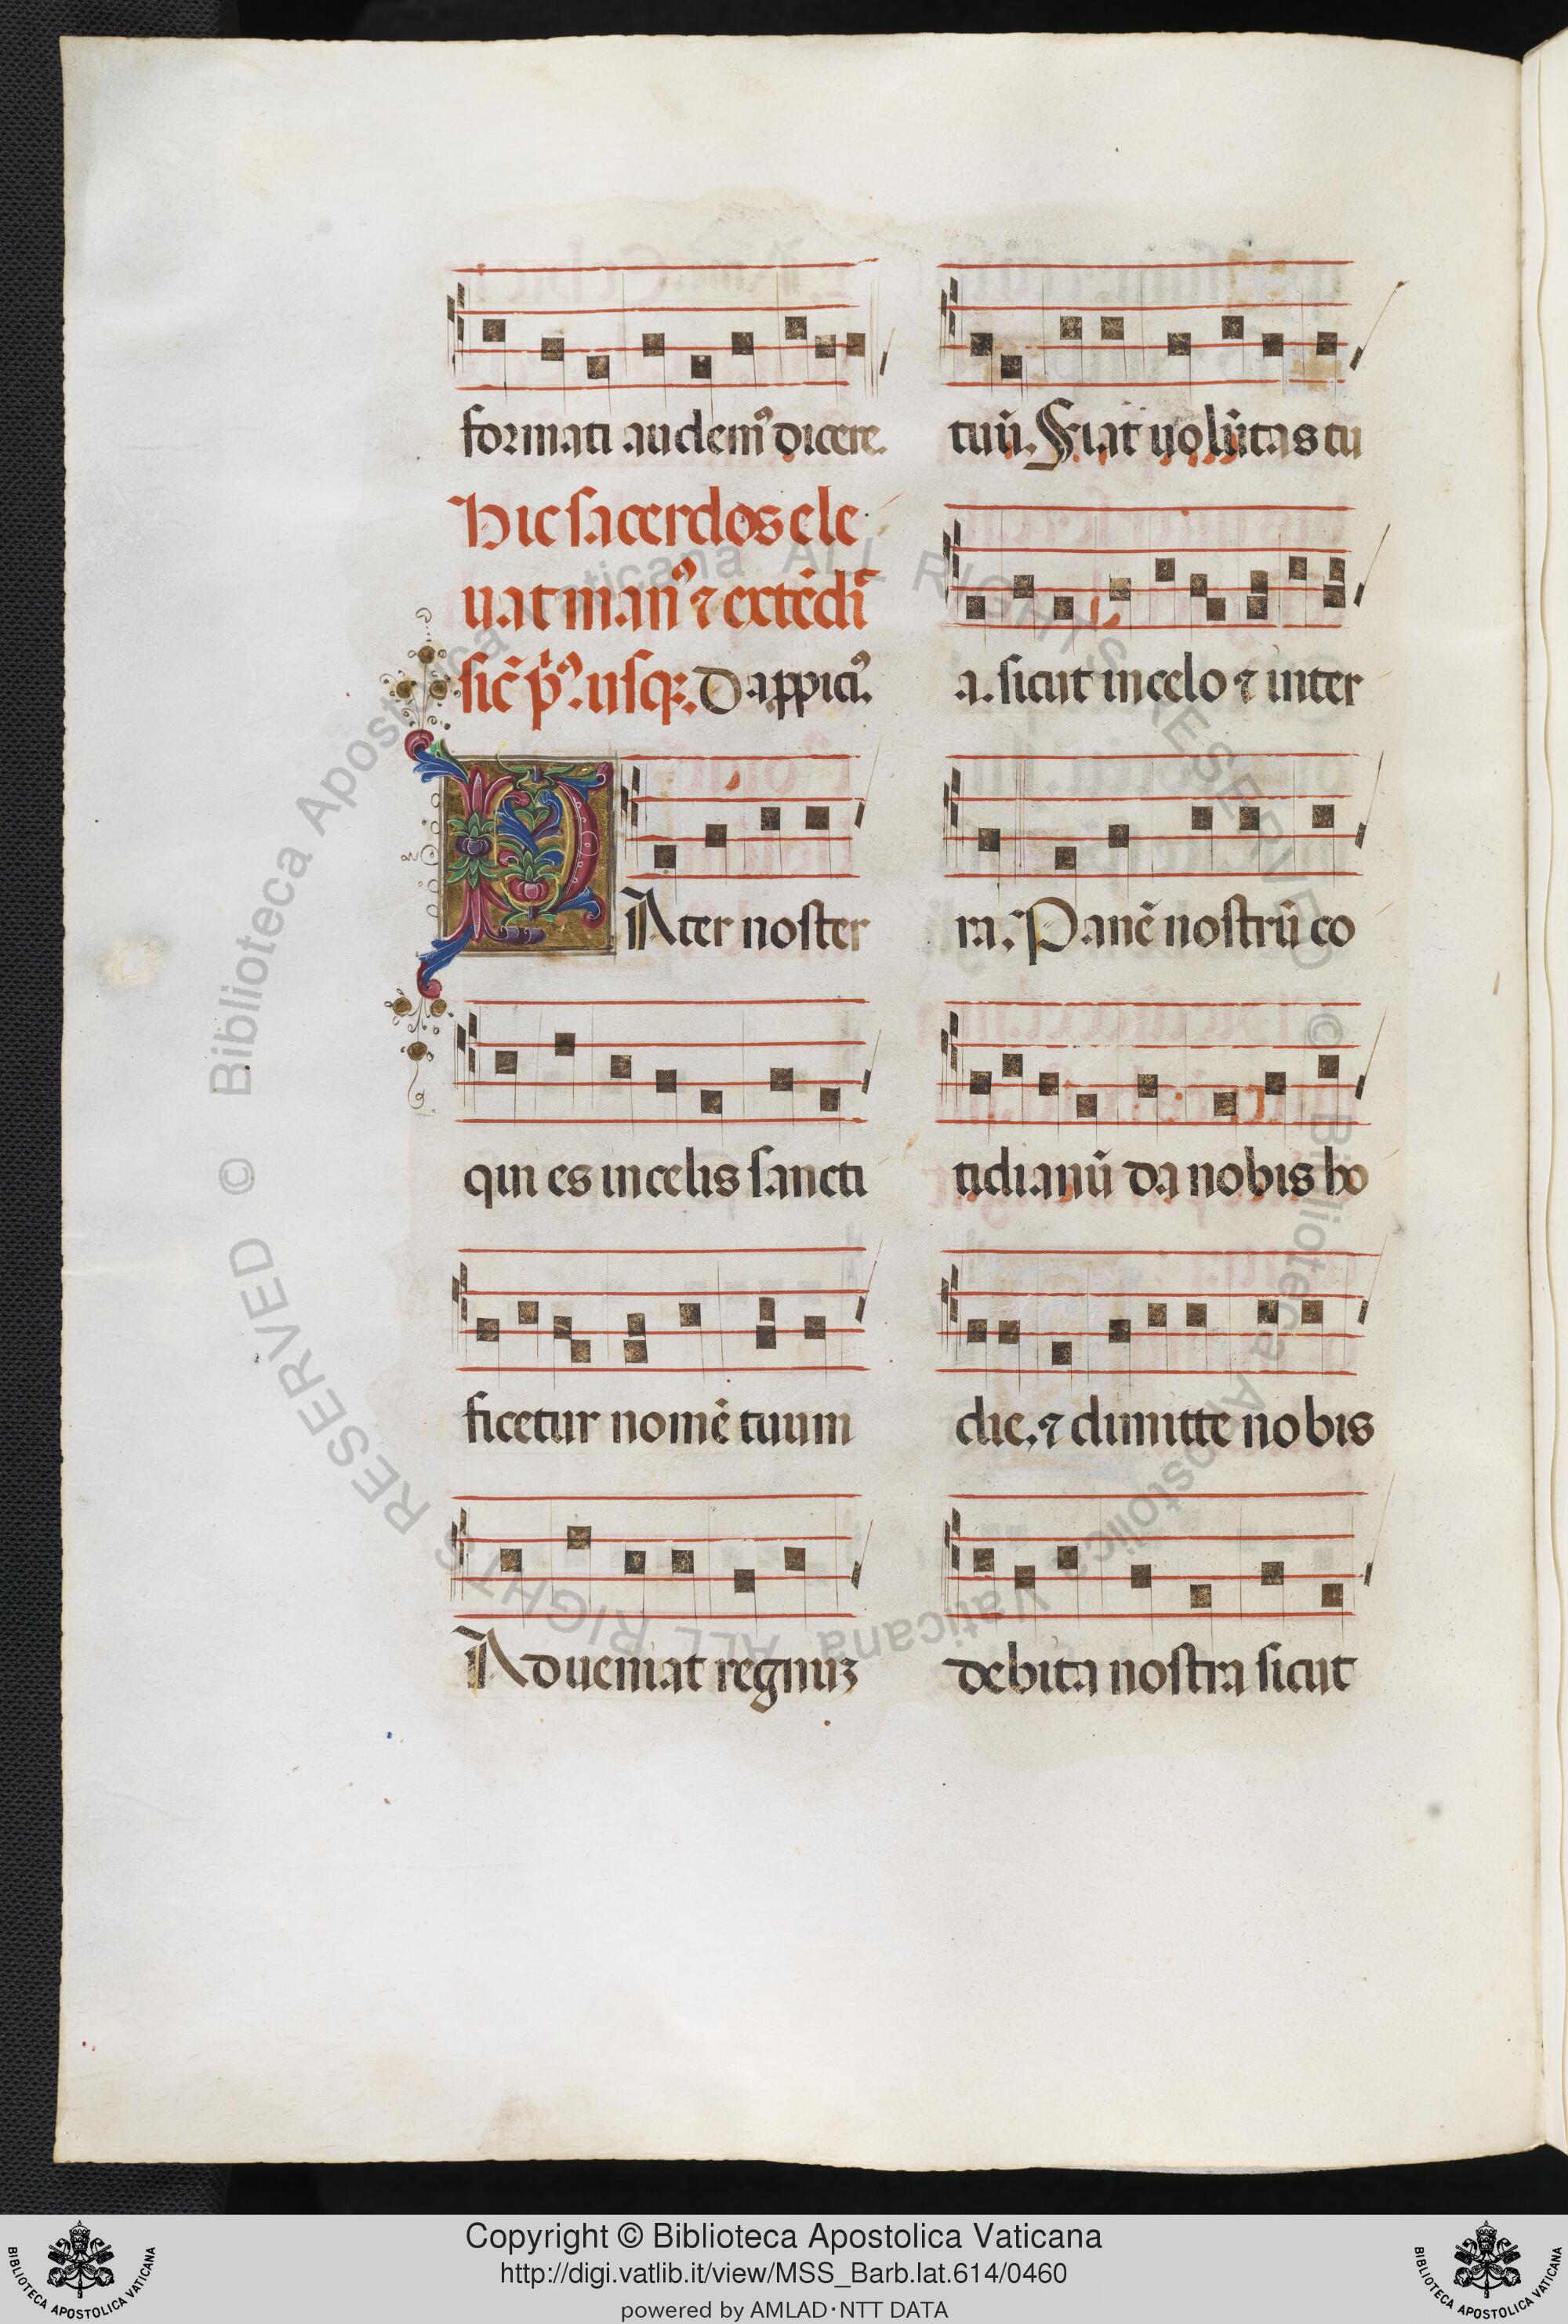 formati audem⁹ dicere.
Hic sacerdos ele
uat man⁹ ⁊ extēdi
sic̄ p̄⁹. usq;. Da ppici⁹.
PAter noster
qui es in celis sancti
ficetur nomē tuum
Adueniat regnuꝫ
tuū. Fiat uolūtas tu
a. sicut in celo ⁊ in ter
ra. Panē nostrū co
tidianū da nobis ho
die. ⁊ dimitte nobis
debita nostra sicut
© Biblioteca Apostolica Vaticana ALL RIGHTS RESERVED © Biblioteca Apostolica Vaticana ALL RIGHTS RESERVED
Copyright © Biblioteca Apostolica Vaticana
http://digi.vatlib.it/view/MSS_Barb.lat.614/0460
powered by AMLAD·NTT DATA
BIBLIOTECA APOSTOLICA VATICANA
BIBLIOTECA APOSTOLICA VATICANA